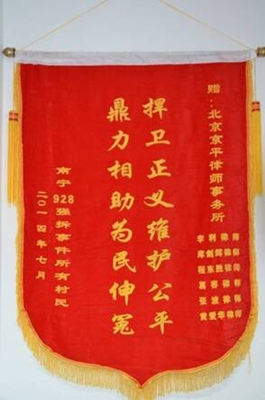 赠:北京京平律师事务所
李 利 律师
程东胜律师
律师
张 波 律师
黄爱华律师
捍卫正义维护公平
鼎力相助为民伸冤
南宁928强拆事件所有村民
二〇一四年七月